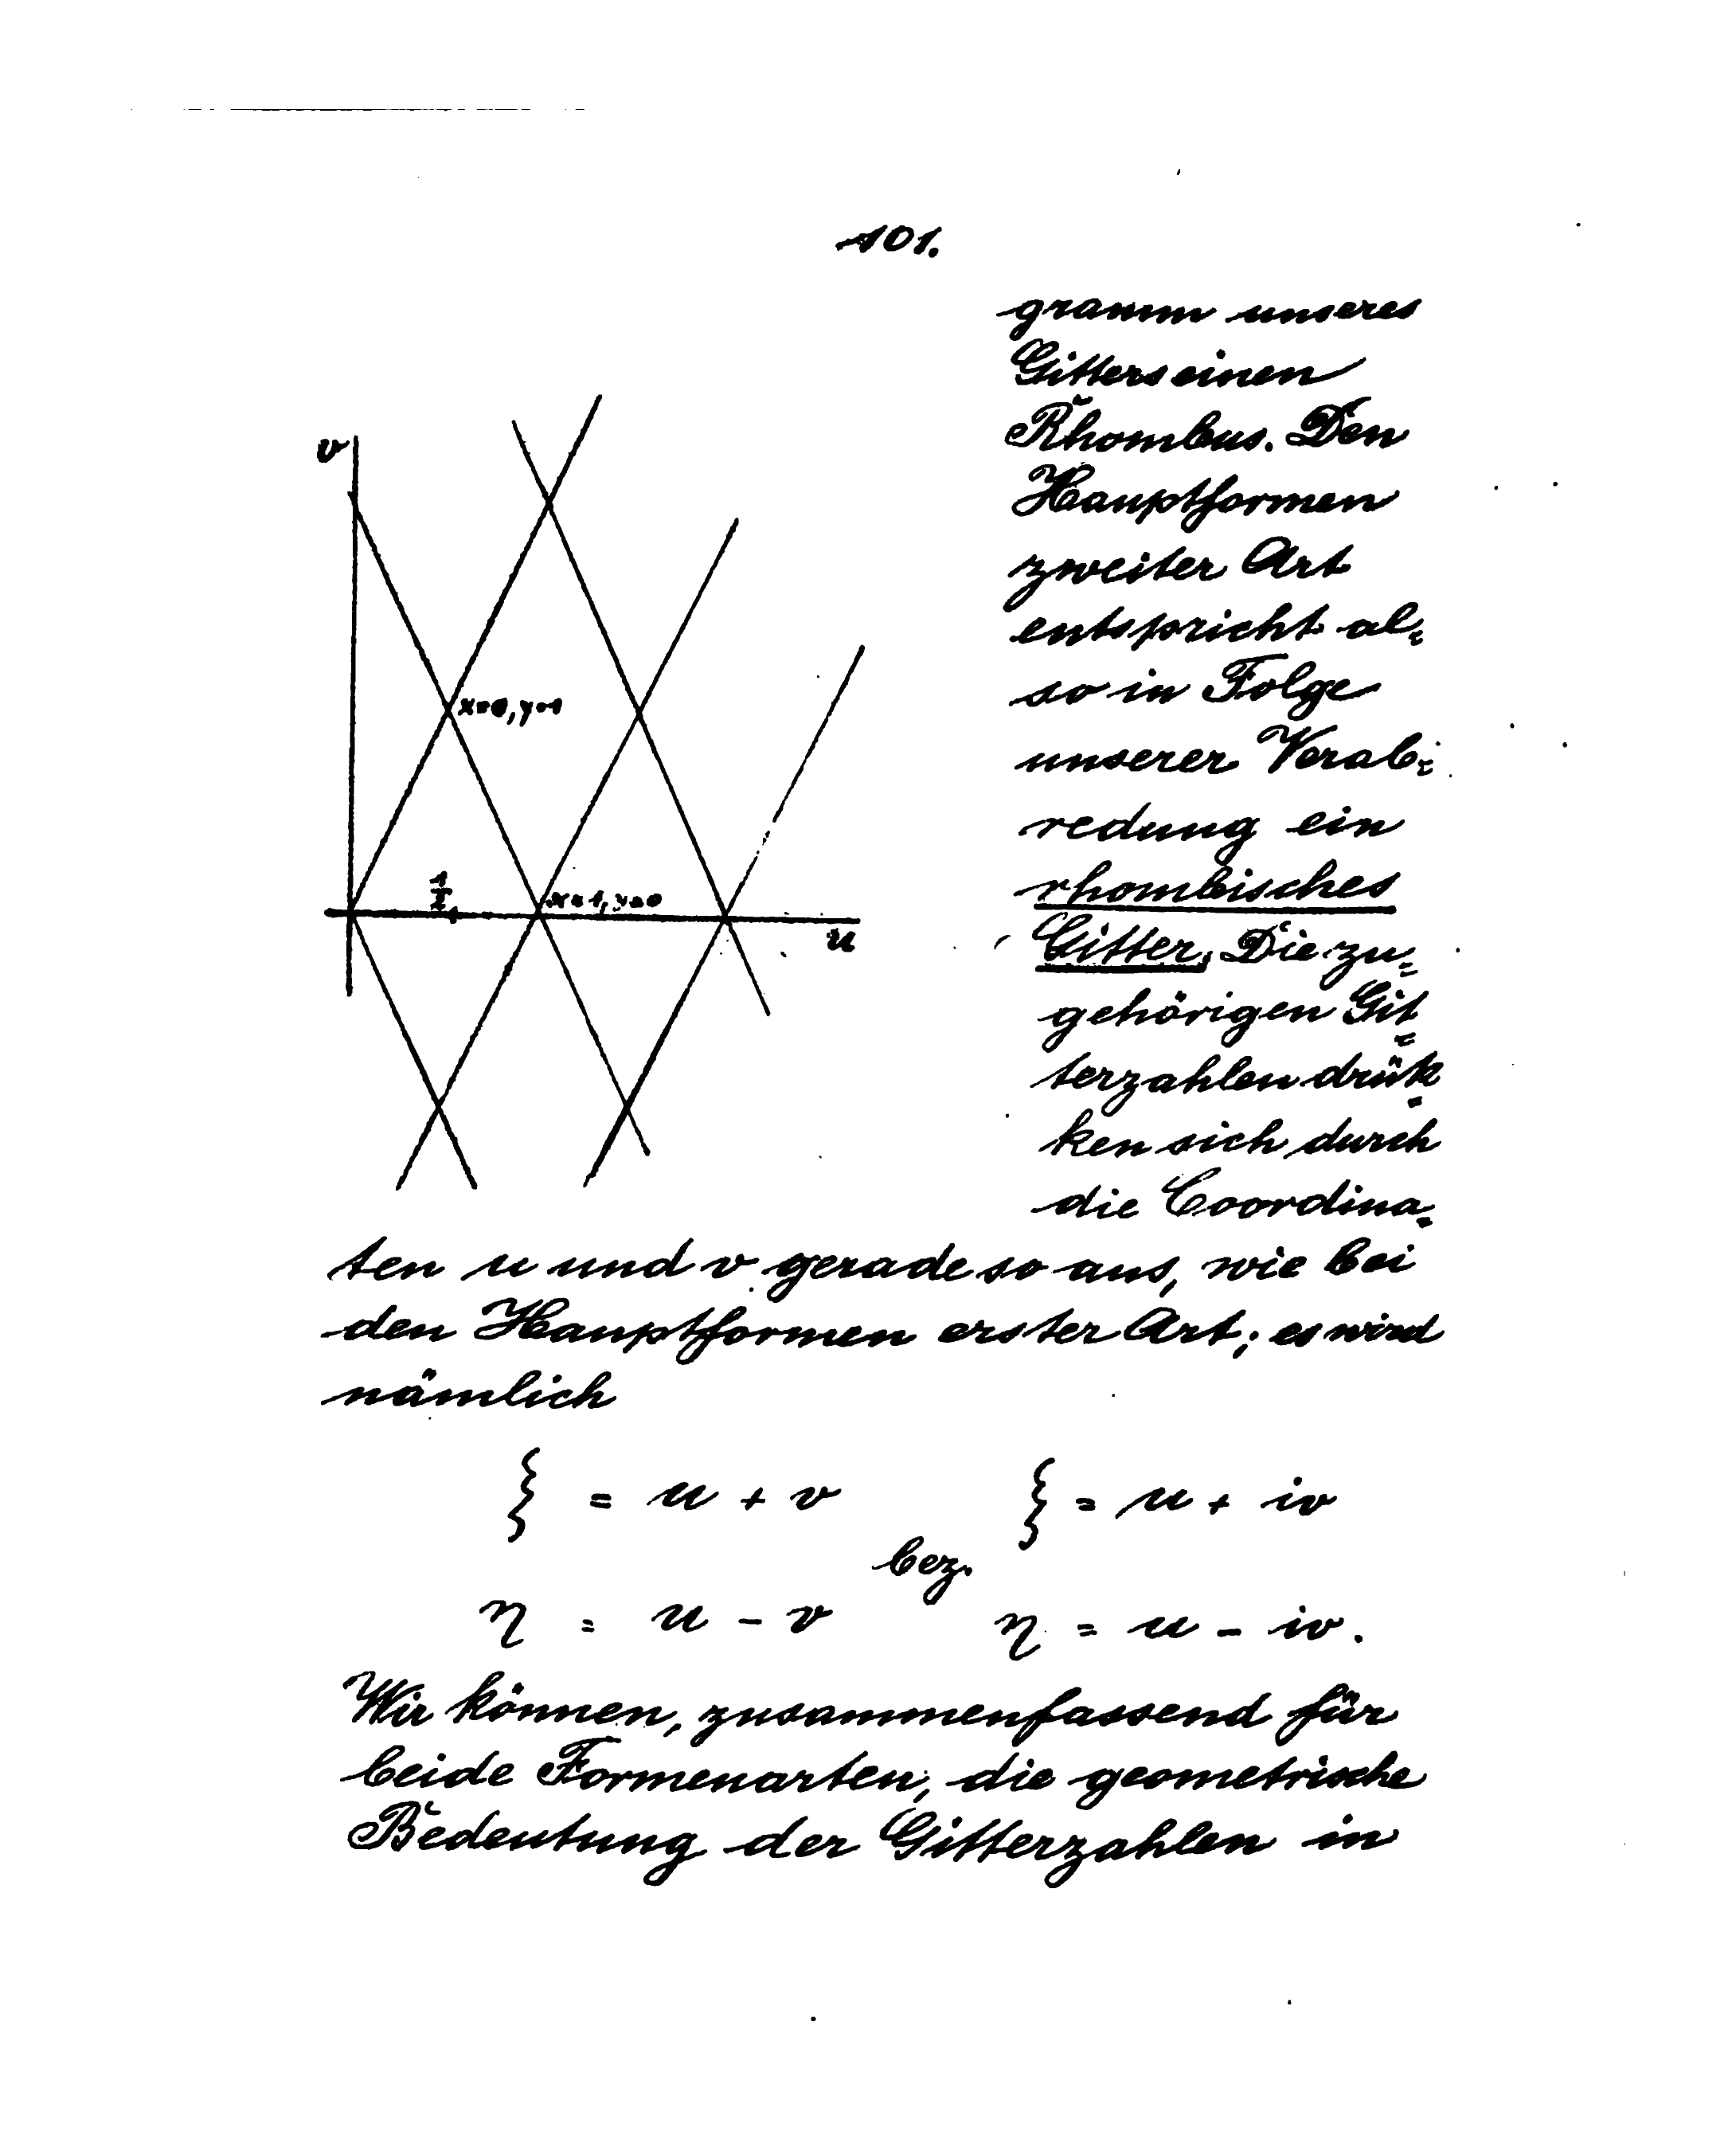 101.
v
x=0, y=1
1/2
x=1, y=0
u
gramm unseres
Gitters einen
Rhombus. Den
Hauptformen
zweiter Art
entspricht al=
so in Folge
unserer Verab=
redung ein
rhombisches
Gitter. Die zu=
gehörigen Git=
terzahlen drük=
ken sich durch
die Coordina=
ten u und v gerade so aus, wie bei
den Hauptformen erster Art; es wird
nämlich
ξ = u + v ξ = u + iv
bez.
η = u - v η = u - iv.
Wir können, zusammenfassend für
beide Formenarten, die geometrische
Bedeutung der Gitterzahlen in